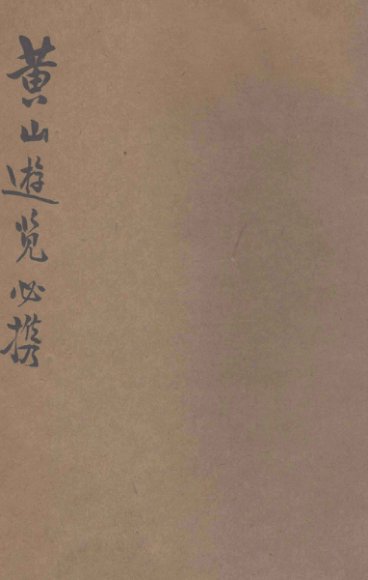 黄山遊览必携